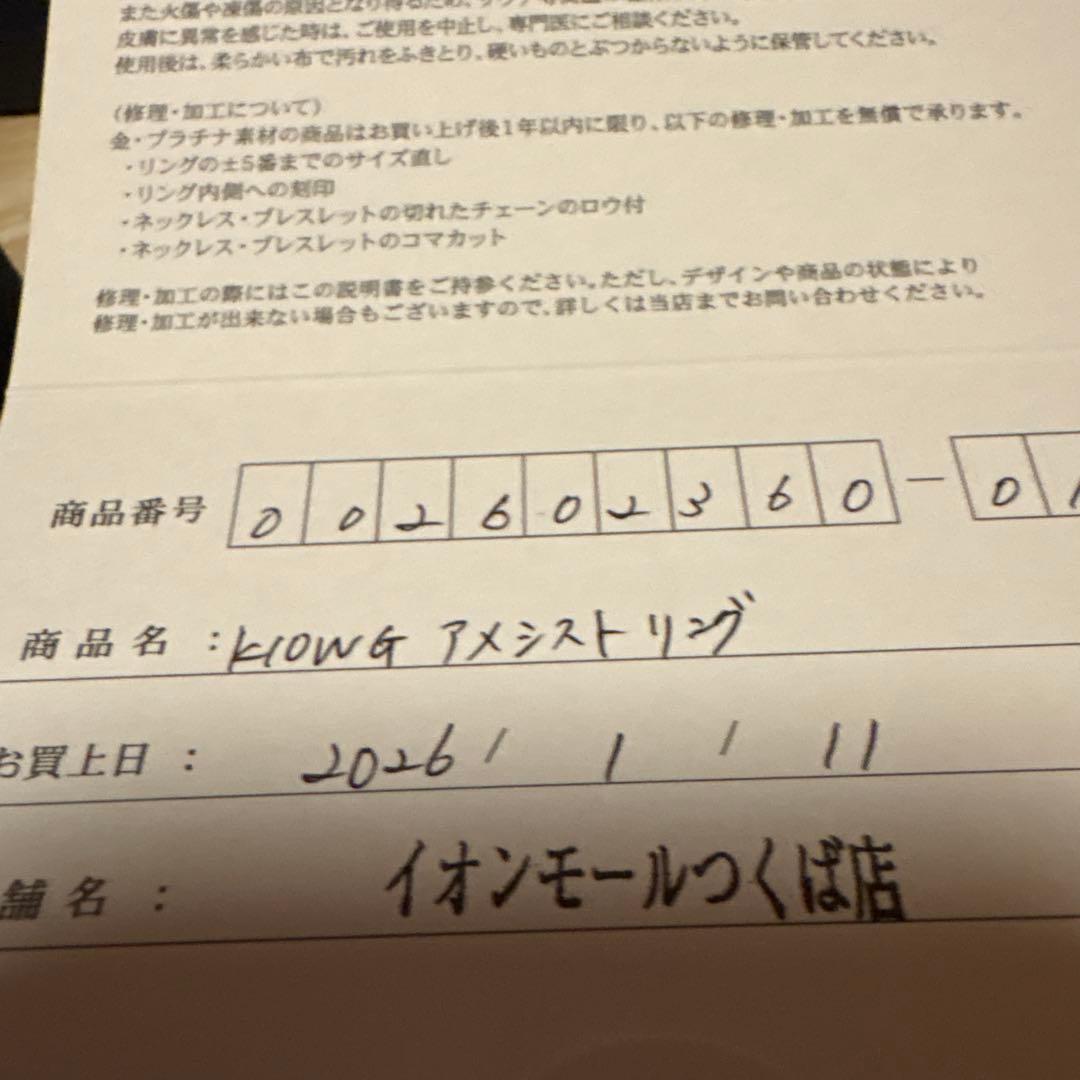 また火傷や凍傷の原因となり得るため、
皮膚に異常を感じた時は、ご使用を中止し、専門医にご相談ください。
使用後は、柔らかい布で汚れをふきとり、硬いものとぶつからないように保管してください。
(修理・加工について)
金・プラチナ素材の商品はお買い上げ後1年以内に限り、以下の修理・加工を無償で承ります。
・リングの±5番までのサイズ直し
・リング内側への刻印
・ネックレス・ブレスレットの切れたチェーンのロウ付
・ネックレス・ブレスレットのコマカット
修理・加工の際にはこの説明書をご持参ください。ただし、デザインや商品の状態により
修理・加工が出来ない場合もございますので、詳しくは当店までお問い合わせください。
商品番号 002602360-0
商品名:K10WG アメシストリング
お買上日: 2026/1/11
舗名: イオンモールつくば店